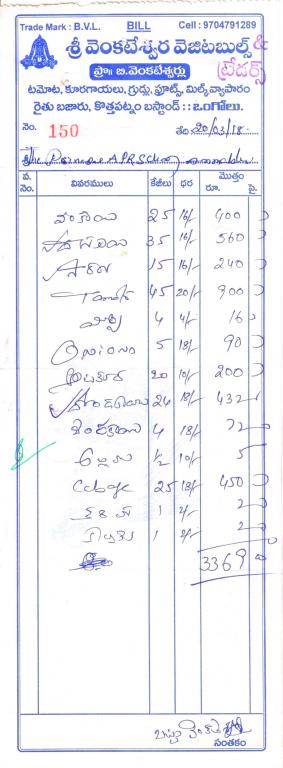 Trade Mark : B.V.L. BILL Cell : 9704791289
శ్రీ వెంకటేశ్వర వెజిటబుల్స్ &
ట్రేడర్స్
ప్రొ॥ బి.వెంకటేశ్వర్లు
టమోట, కూరగాయలు, గ్రుడ్లు, ఫ్రూట్స్, మిల్క్ వ్యాపారం
రైతు బజారు, కొత్తపట్నం బస్టాండ్ :: ఒంగోలు.
నెం. 150 తేది 20/03/18.
శ్రీ The A.P.R.School
వ. నెం. వివరములు కేజీలు ధర మొత్తం రూ. పై.
వంకాయ 25 16/- 400
35 16/- 560
15 16/- 240
45 20/- 900
మిర్చి 4 4/- 16
5 18/- 90
20 10/- 200
24 18/- 432
4 18/- 72
అల్లము ½ 10/- 5
Cabage 25 18/- 450
1 2/- 2
1 2/- 2
3369
సంతకం